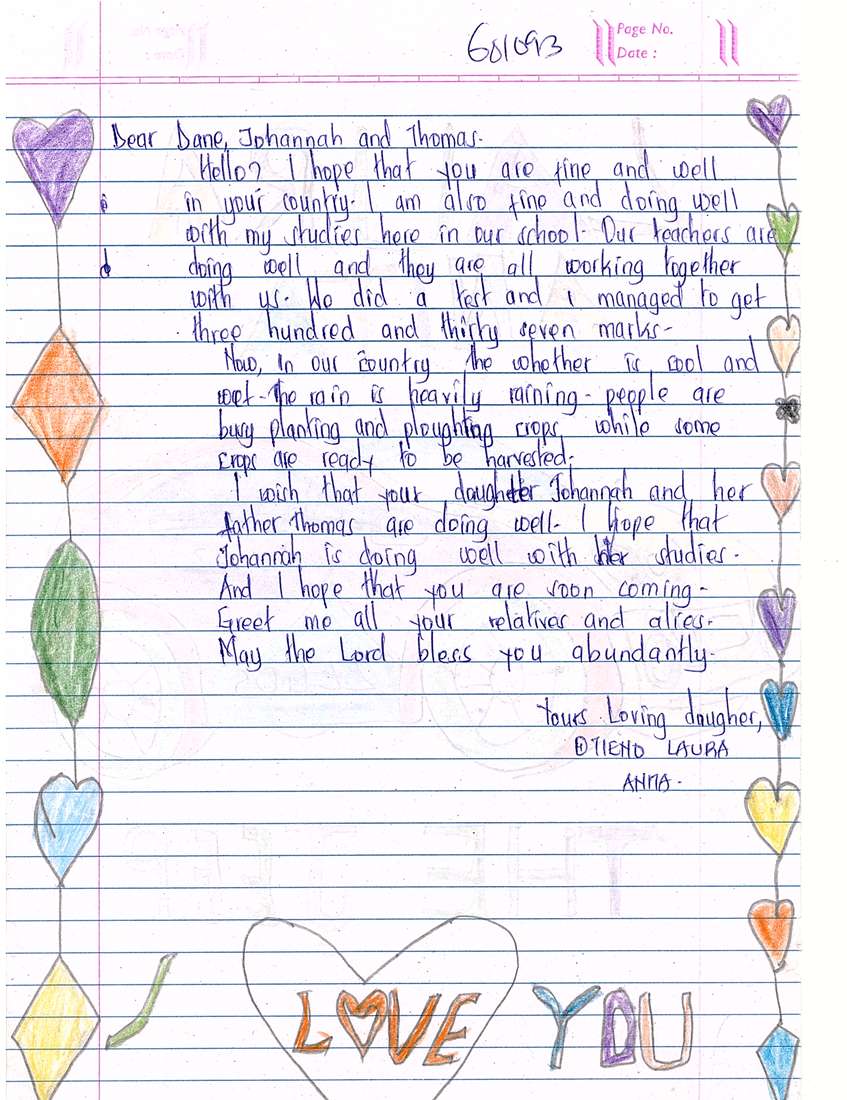 601093
Page No.
Date :
Dear Dane, Johannah and Thomas.
Hello? I hope that you are fine and well
in your country. I am also fine and doing well
with my studies here in our school. Our teachers are
doing well and they are all working together
with us. We did a test and i managed to get
three hundred and thirty seven marks.
Now, in our country the whether is cool and
wet. The rain is heavily raining. people are
busy planting and ploughting crops while some
crops are ready to be harvested.
I wish that your daughter Johannah and her
father Thomas are doing well. I hope that
Johannah is doing well with her studies.
And I hope that you are soon coming.
Greet me all your relatives and alies.
May the Lord bless you abundantly.
Yours Loving daugher,
OTIENO LAURA
ANNA.
I LOVE YOU